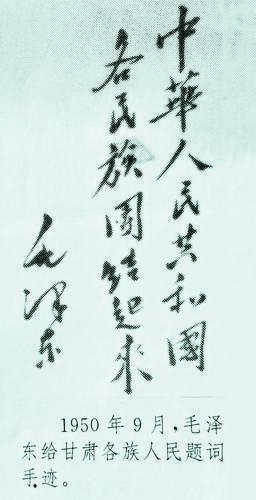 中華人民共和國
各民族團结起來
毛澤东
1950年9月,毛泽
东给甘肃各族人民题词
手迹。